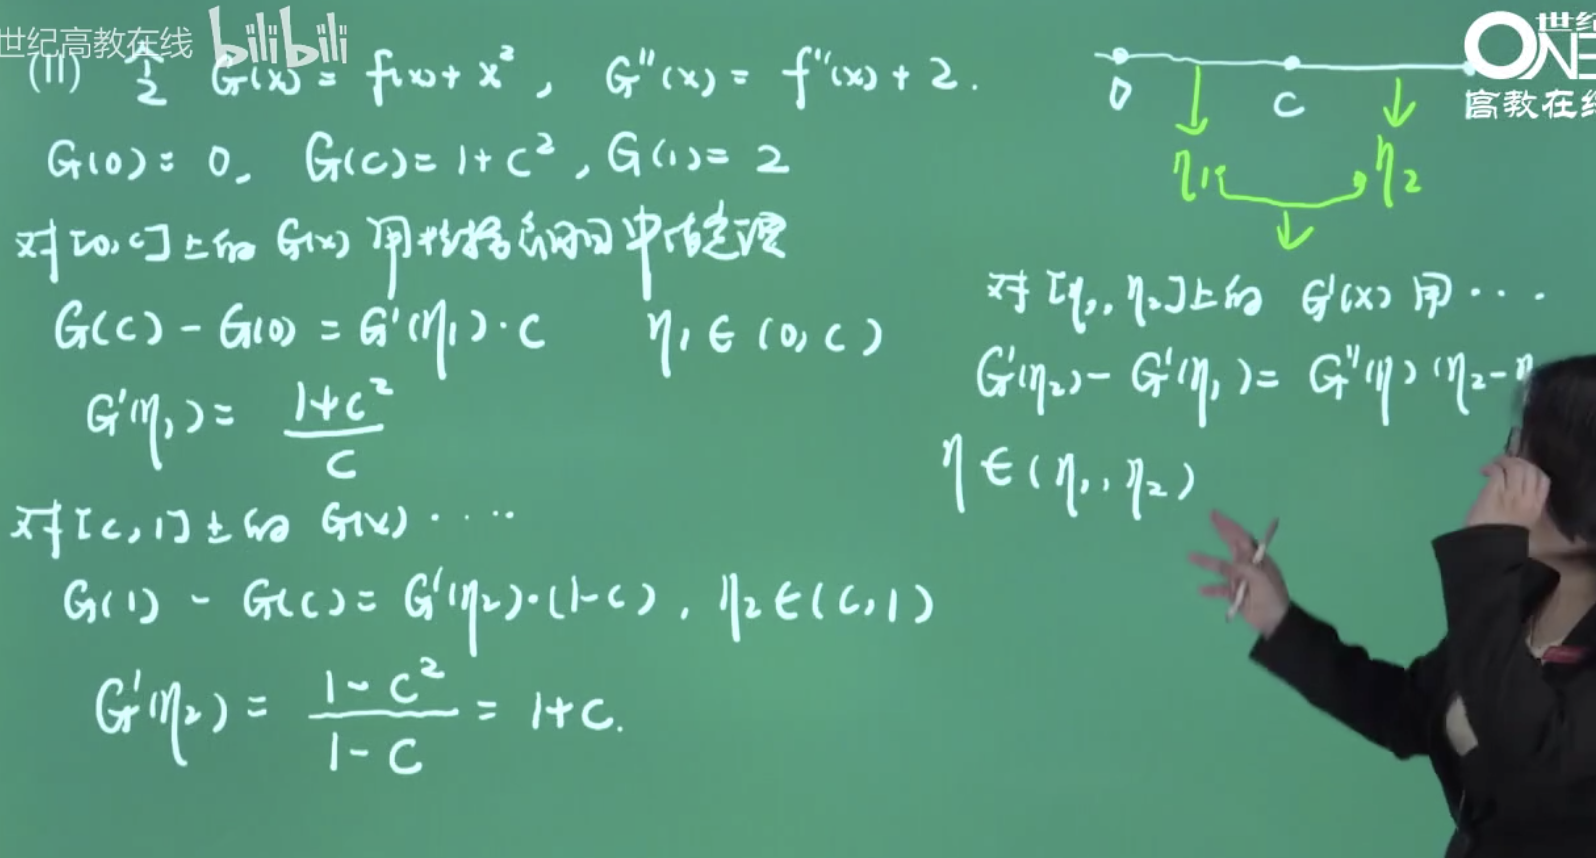 世纪高教在线 bilibili
(II) 令 G(x) = f(x) + x², G''(x) = f''(x) + 2.
G(0) = 0, G(c) = 1 + c², G(1) = 2
对[0,c]上的 G(x) 用拉格朗日中值定理
G(c) - G(0) = G'(η₁)·c η₁ ∈ (0, c)
G'(η₁) = (1+c²)/c
对[c,1]上的 G(x) ····
G(1) - G(c) = G'(η₂)·(1-c), η₂ ∈ (c,1)
G'(η₂) = (1-c²)/(1-c) = 1+c.
0 c
η₁ η₂
对[η₁, η₂]上的 G'(x) 用···
G'(η₂) - G'(η₁) = G''(η)(η₂-
η ∈ (η₁, η₂)
世纪
ONE
高教在线